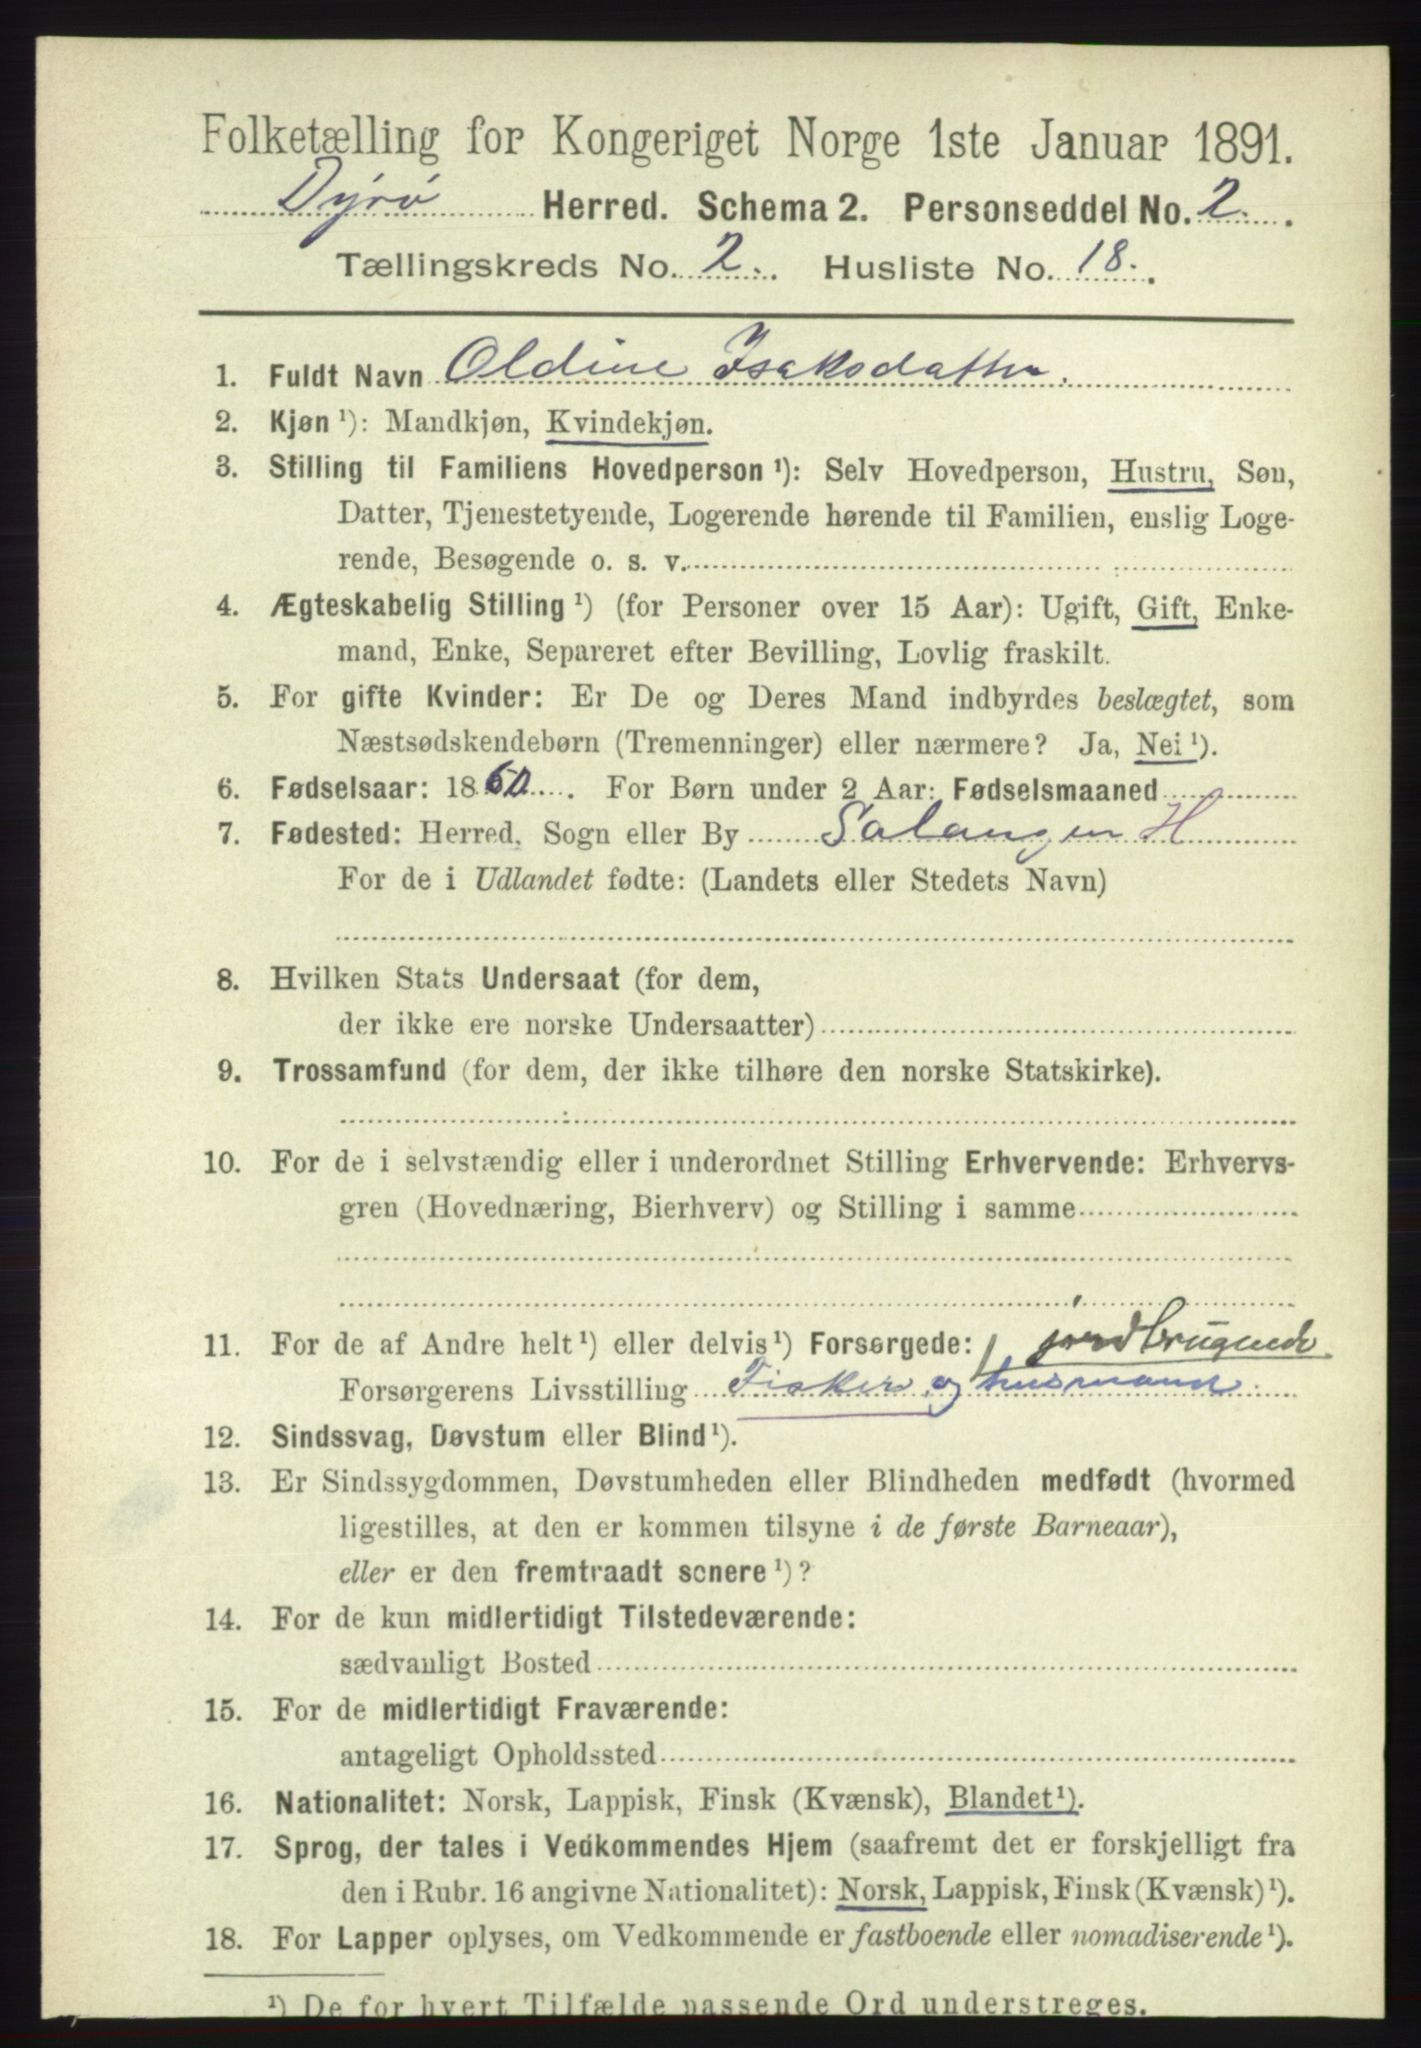 Folketælling for Kongeriget Norge 1ste Januar 1891.
Dyrø Herred. Schema 2. Personseddel No. 2.
Tællingskreds No. 2. Husliste No. 18.
1. Fuldt Navn Oldine Isaksdatter.
2. Kjøn ¹): Mandkjøn, Kvindekjøn.
3. Stilling til Familiens Hovedperson ¹): Selv Hovedperson, Hustru, Søn,
Datter, Tjenestetyende, Logerende hørende til Familien, enslig Loge-
rende, Besøgende o. s. v.
4. Ægteskabelig Stilling ¹) (for Personer over 15 Aar): Ugift, Gift, Enke-
mand, Enke, Separeret efter Bevilling, Lovlig fraskilt.
5. For gifte Kvinder: Er De og Deres Mand indbyrdes beslægtet, som
Næstsødskendebørn (Tremenninger) eller nærmere? Ja, Nei ¹).
6. Fødselsaar: 1860. For Børn under 2 Aar: Fødselsmaaned
7. Fødested: Herred, Sogn eller By Salangen H
For de i Udlandet fødte: (Landets eller Stedets Navn)
8. Hvilken Stats Undersaat (for dem,
der ikke ere norske Undersaatter)
9. Trossamfund (for dem, der ikke tilhøre den norske Statskirke).
10. For de i selvstændig eller i underordnet Stilling Erhvervende: Erhvervs-
gren (Hovednæring, Bierhverv) og Stilling i samme
11. For de af Andre helt ¹) eller delvis ¹) Forsørgede: jordbrugende
Forsørgerens Livsstilling Fisker og husmand.
12. Sindssvag, Døvstum eller Blind ¹).
13. Er Sindssygdommen, Døvstumheden eller Blindheden medfødt (hvormed
ligestilles, at den er kommen tilsyne i de første Barneaar),
eller er den fremtraadt senere ¹)?
14. For de kun midlertidigt Tilstedeværende:
sædvanligt Bosted
15. For de midlertidigt Fraværende:
antageligt Opholdssted
16. Nationalitet: Norsk, Lappisk, Finsk (Kvænsk), Blandet ¹).
17. Sprog, der tales i Vedkommendes Hjem (saafremt det er forskjelligt fra
den i Rubr. 16 angivne Nationalitet): Norsk, Lappisk, Finsk (Kvænsk) ¹).
18. For Lapper oplyses, om Vedkommende er fastboende eller nomadiserende ¹).
¹) De for hvert Tilfælde passende Ord understreges.